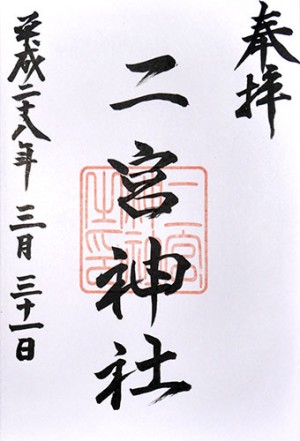 奉拝
二宮神社
二宮神社之印
平成二十八年 三月 三十一日